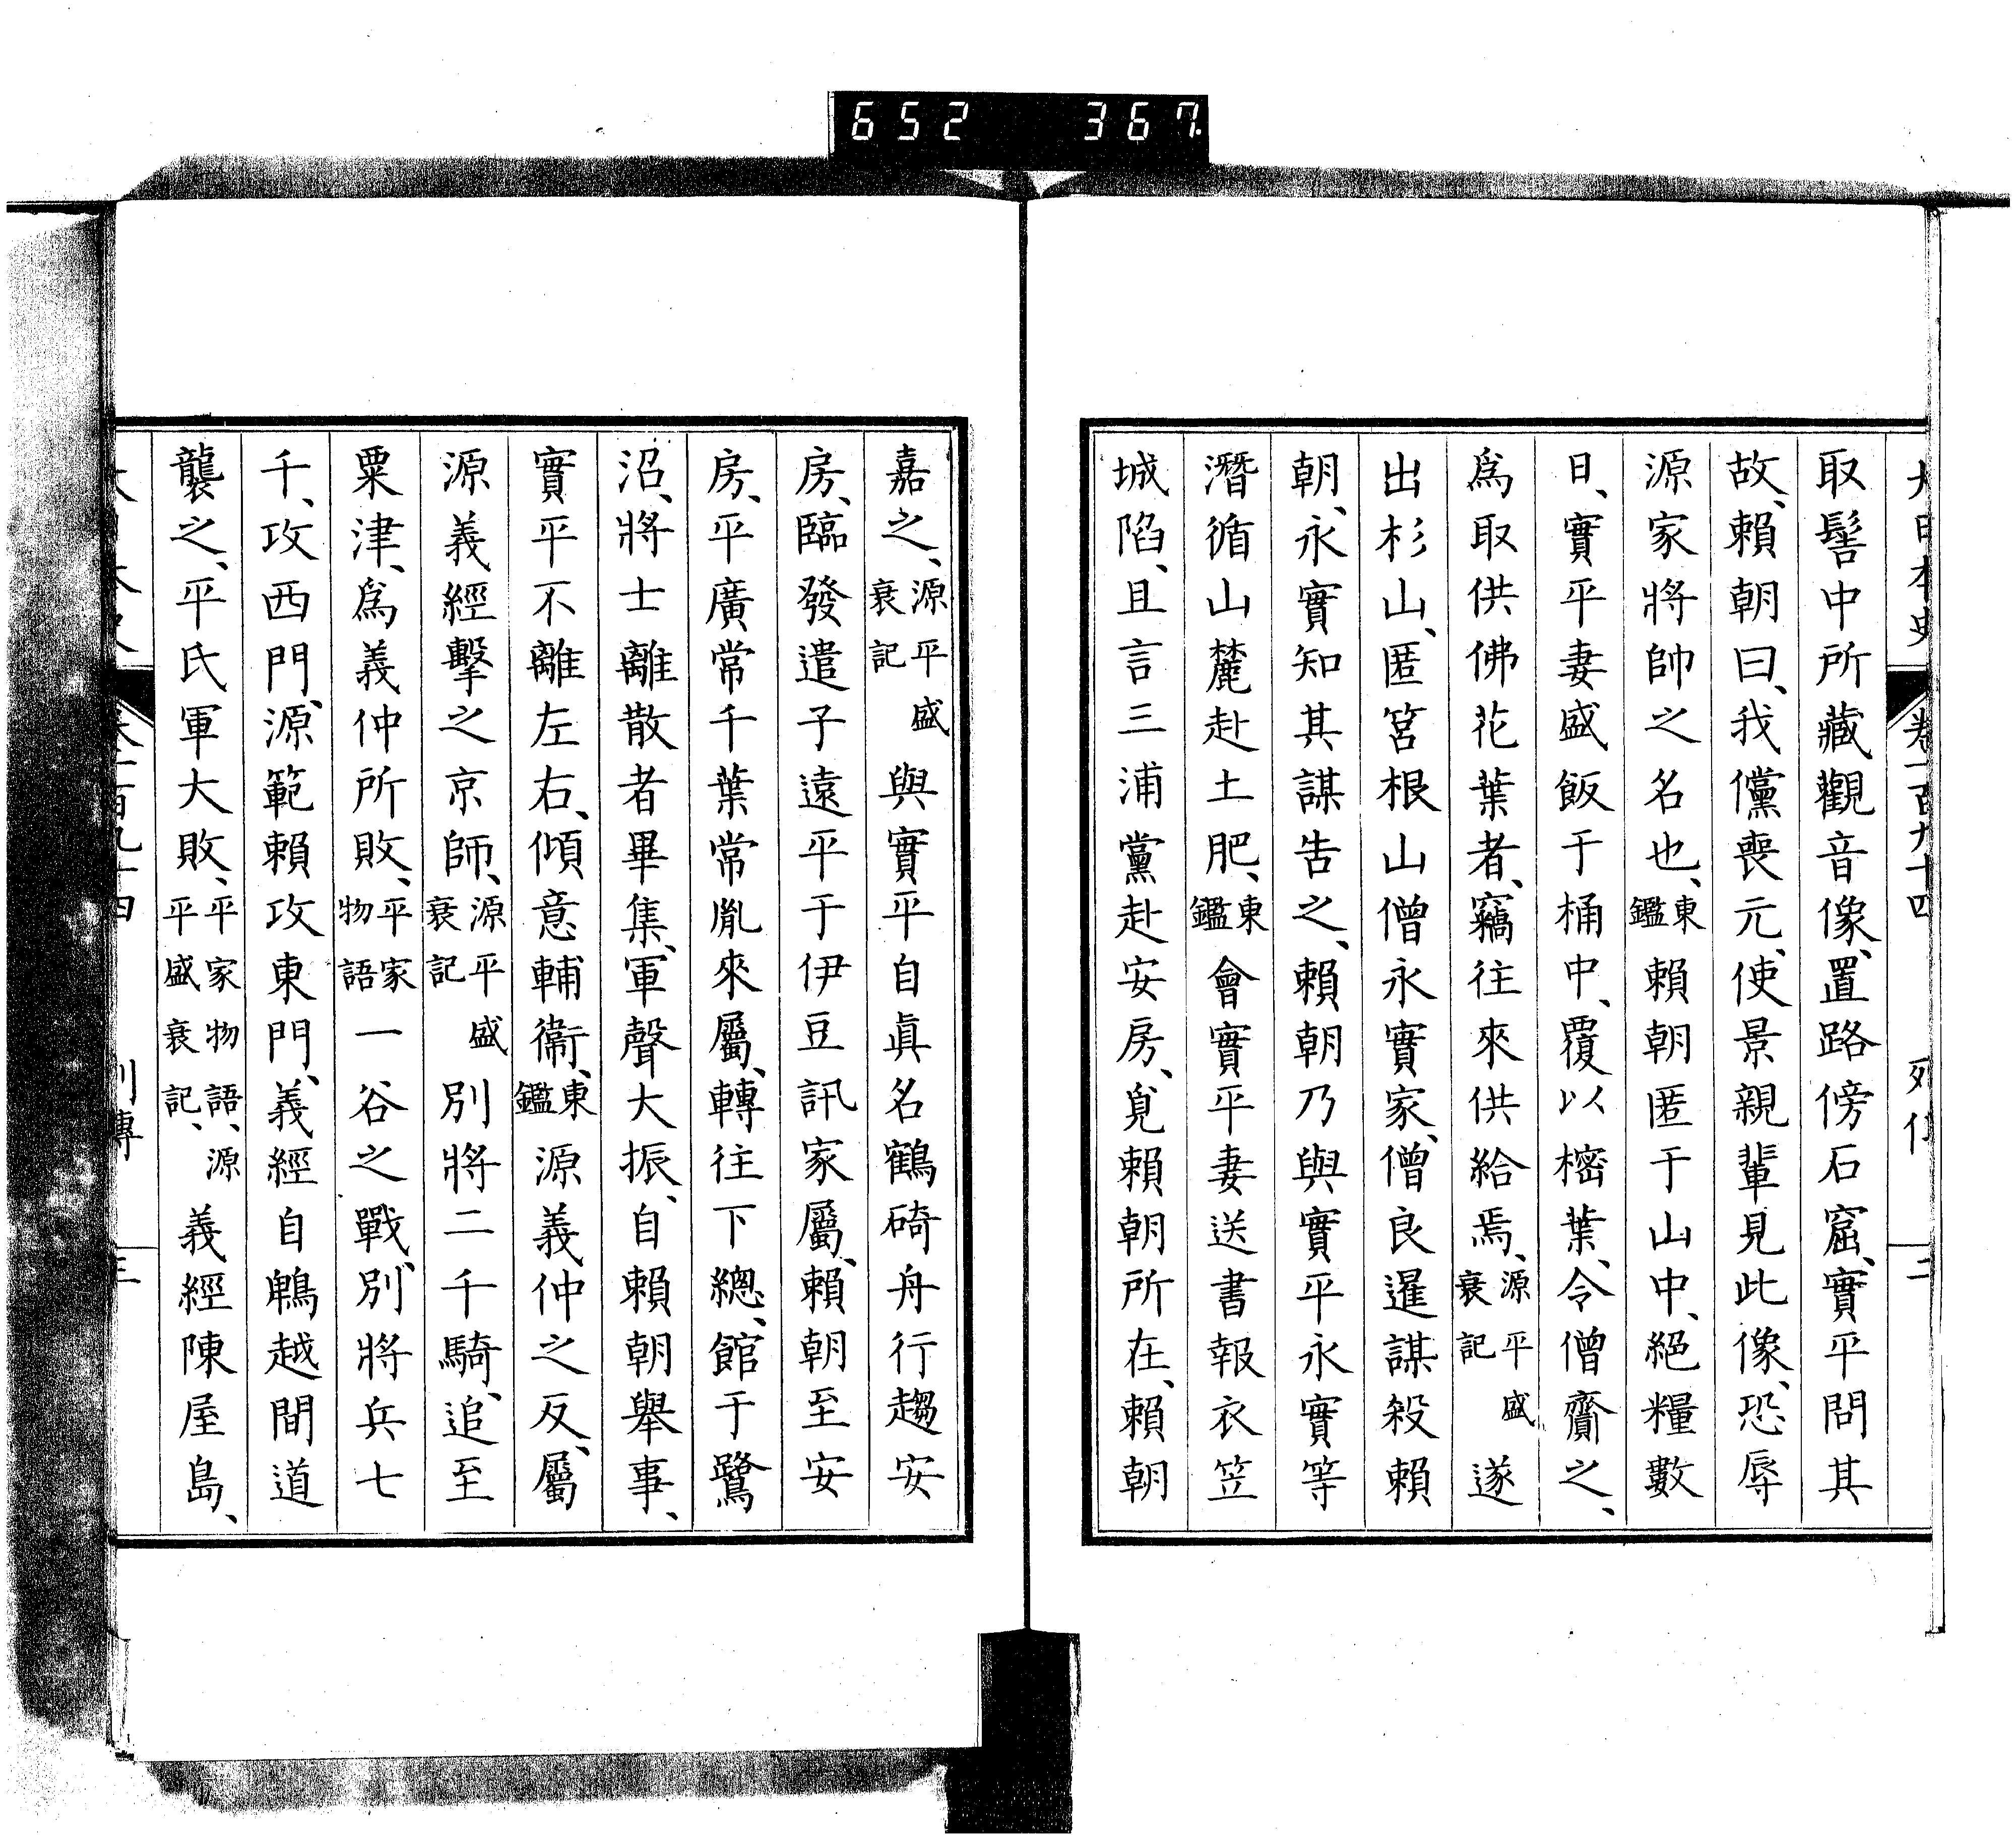 652 367
大日本史 卷一百九十四 列傳 二
取髻中所藏觀音像、置路傍石窟、實平問其
故、賴朝曰、我儻喪元、使景親輩見此像、恐辱
源家將帥之名也、東鑑賴朝匿于山中、絕糧數
日、實平妻盛飯于桶中、覆以樒葉、令僧齎之、
爲取供佛花葉者、竊往來供給焉、源平盛衰記遂
出杉山、匿筥根山僧永實家、僧良暹謀殺賴
朝、永實知其謀告之、賴朝乃與實平永實等
潛循山麓赴土肥、東鑑會實平妻送書報衣笠
城陷、且言三浦黨赴安房、覓賴朝所在、賴朝
嘉之、源平盛衰記與實平自眞名鶴碕舟行趨安
房、臨發遣子遠平于伊豆訊家屬、賴朝至安
房、平廣常千葉常胤來屬、轉往下總、館于鷺
沼、將士離散者畢集、軍聲大振、自賴朝舉事、
實平不離左右、傾意輔衞、東鑑源義仲之反、屬
源義經擊之京師、源平盛衰記別將二千騎、追至
粟津、爲義仲所敗、平家物語一谷之戰、別將兵七
千、攻西門、源範賴攻東門、義經自鵯越間道
襲之、平氏軍大敗、平家物語、源平盛衰記、義經陳屋島、
大日本史 卷一百九十四 列傳 三